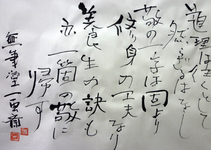 道理往くとして
然らざるはなし
敬の一字は固より
修身の工夫なり
養生の訣も
亦一箇の敬に
帰す
無筆堂一真前